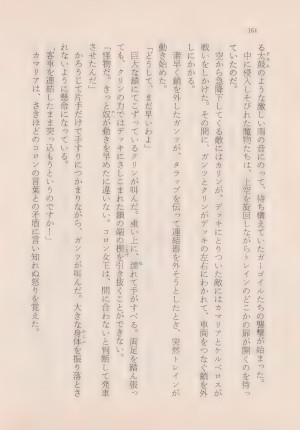 164
る太鼓のような激しい雨の音にのって、待ち構えていたガーゴイルたちの襲撃が始まった。
中に侵入しそびれた魔物たちは、上空を旋回しながらトレインのどこかの扉が開くのを待っ
ていたのだ。
空から急降下してくる敵にはカリンが、デッキにとりついた敵にはカマリアとケルベロスが
戦いをしかけた。その間に、ガンツとクリンがデッキの左右にわかれて、車両をつなぐ鎖を外
しにかかる。
素早く鎖を外したガンツが、タラップを伝って連結器を外そうとしたとき、突然トレインが
動き始めた。
「どうして、まだ早いわよ」
巨大な鎖にてこずっているクリンが叫んだ。重い上に、濡れて手がすべる。両足を踏ん張っ
ても、クリンの力ではデッキにさしこまれた鎖の端の楔を引き抜くことができない。
「怪物だ。きっと奴が動きを早めたに違いない。コロン女王は、間に合わないと判断して発車
させたんだ」
かろうじて片手だけで手すりにつかまりながら、ガンツが叫んだ。大きな身体を振り落とさ
れないように懸命になっている。
「客車を連結したまま突っ込もうというのですか!」
カマリアは、さきほどのコロンの言葉との矛盾に言い知れぬ怒りを覚えた。